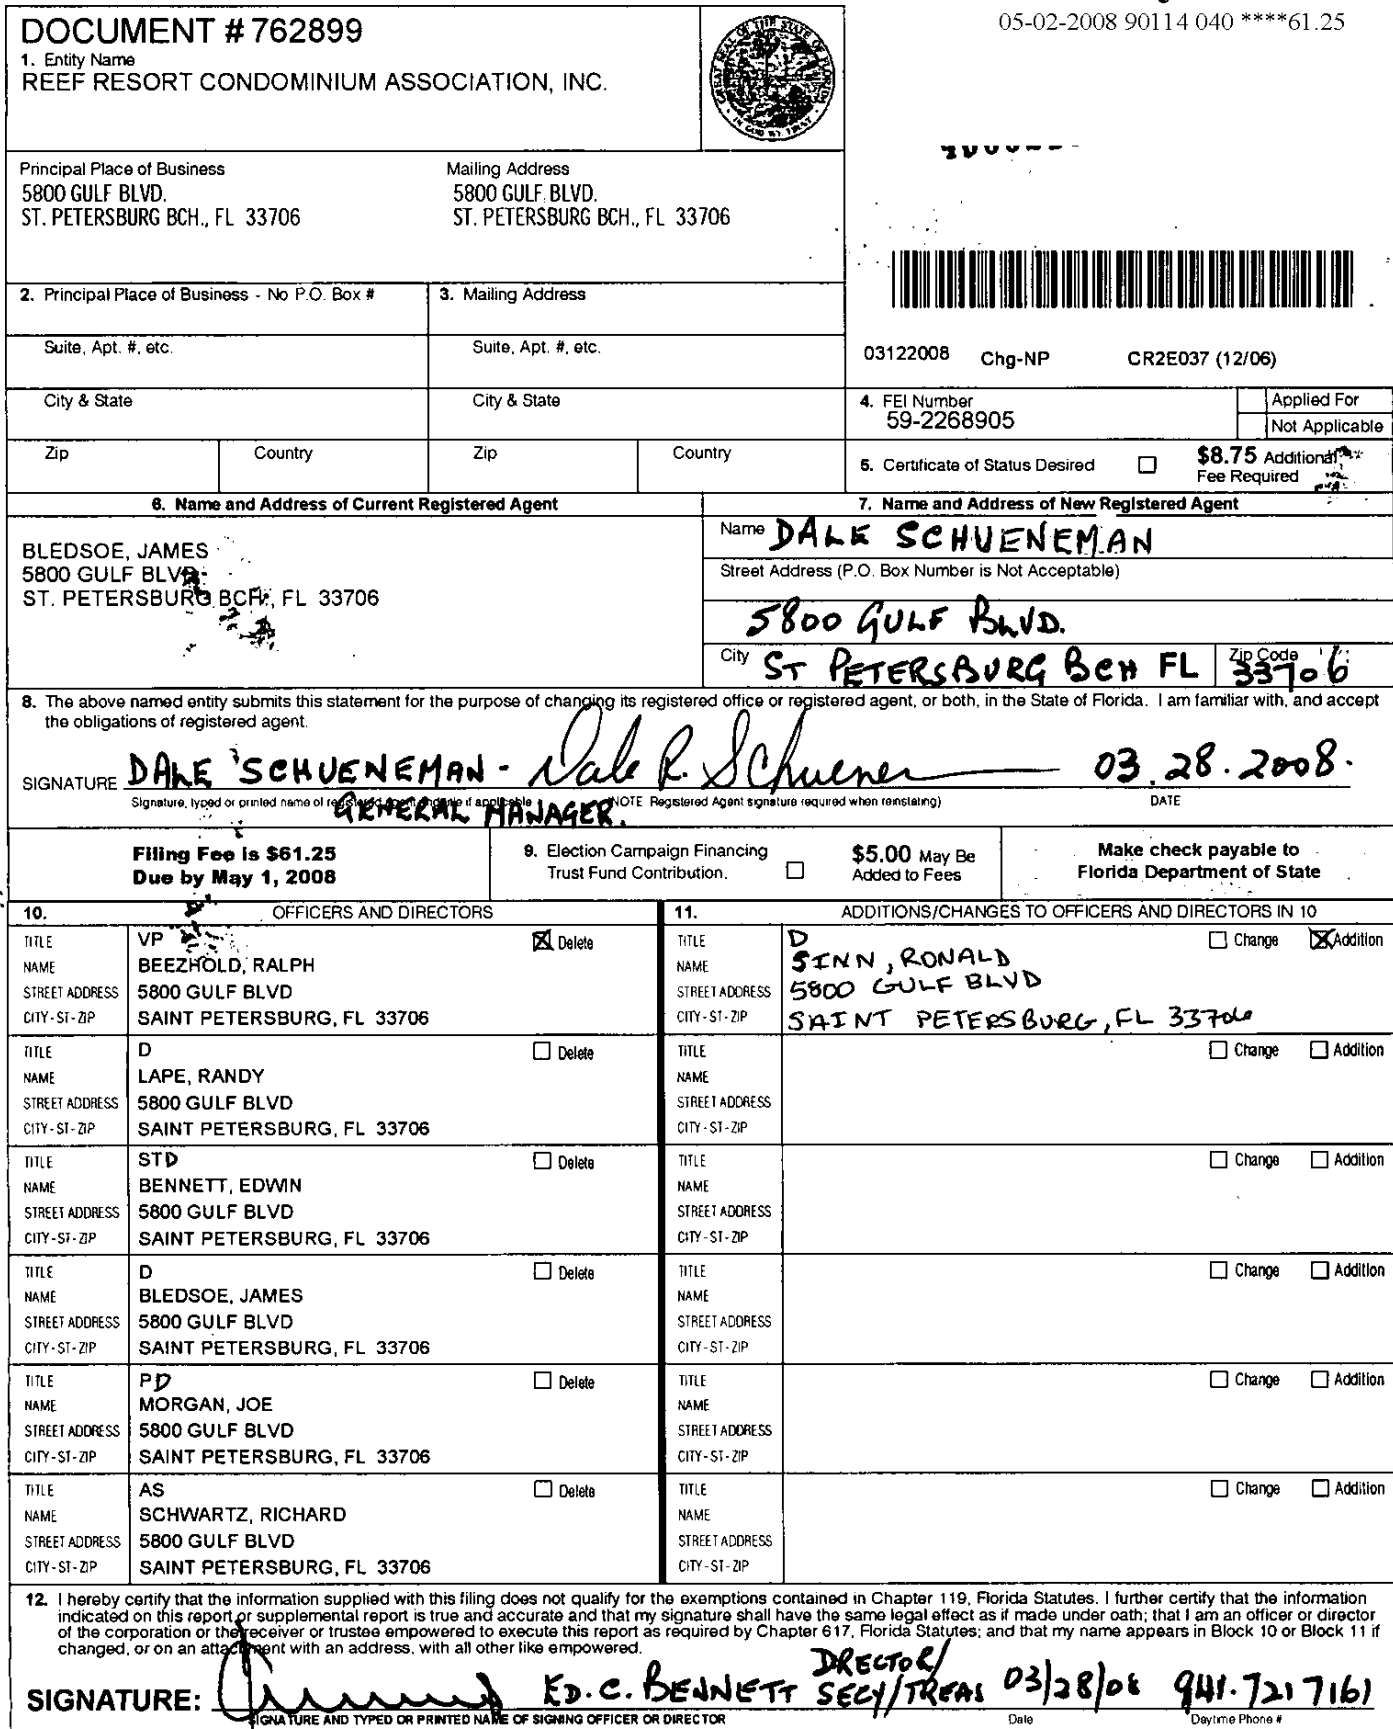 05-02-2008 90114 040 ****61.25
DOCUMENT # 762899
1. Entity Name
REEF RESORT CONDOMINIUM ASSOCIATION, INC.
GREAT SEAL OF THE STATE OF FLORIDA
IN GOD WE TRUST
Principal Place of Business
5800 GULF BLVD.
ST. PETERSBURG BCH., FL 33706
Mailing Address
5800 GULF BLVD.
ST. PETERSBURG BCH., FL 33706
2. Principal Place of Business - No P.O. Box #
3. Mailing Address
Suite, Apt. #, etc.
Suite, Apt. #, etc.
03122008 Chg-NP CR2E037 (12/06)
City & State
City & State
4. FEI Number
59-2268905
Applied For
Not Applicable
Zip
Country
Zip
Country
5. Certificate of Status Desired
$8.75 Additional
Fee Required
6. Name and Address of Current Registered Agent
BLEDSOE, JAMES
5800 GULF BLVD.
ST. PETERSBURG BCH., FL 33706
7. Name and Address of New Registered Agent
Name DALE SCHUENEMAN
Street Address (P.O. Box Number is Not Acceptable)
5800 GULF BLVD.
City ST PETERSBURG BCH FL Zip Code 33706
8. The above named entity submits this statement for the purpose of changing its registered office or registered agent, or both, in the State of Florida. I am familiar with, and accept
the obligations of registered agent.
SIGNATURE DALE SCHUENEMAN - Dale R. Schuener 03.28.2008.
Signature, typed or printed name of registered agent and title if applicable (NOTE Registered Agent signature required when reinstating) DATE
GENERAL MANAGER.
Filing Fee is $61.25
Due by May 1, 2008
9. Election Campaign Financing
Trust Fund Contribution.
$5.00 May Be
Added to Fees
Make check payable to
Florida Department of State
10. OFFICERS AND DIRECTORS
TITLE VP Delete
NAME BEEZHOLD, RALPH
STREET ADDRESS 5800 GULF BLVD
CITY-ST-ZIP SAINT PETERSBURG, FL 33706
TITLE D Delete
NAME LAPE, RANDY
STREET ADDRESS 5800 GULF BLVD
CITY-ST-ZIP SAINT PETERSBURG, FL 33706
TITLE STD Delete
NAME BENNETT, EDWIN
STREET ADDRESS 5800 GULF BLVD
CITY-ST-ZIP SAINT PETERSBURG, FL 33706
TITLE D Delete
NAME BLEDSOE, JAMES
STREET ADDRESS 5800 GULF BLVD
CITY-ST-ZIP SAINT PETERSBURG, FL 33706
TITLE PD Delete
NAME MORGAN, JOE
STREET ADDRESS 5800 GULF BLVD
CITY-ST-ZIP SAINT PETERSBURG, FL 33706
TITLE AS Delete
NAME SCHWARTZ, RICHARD
STREET ADDRESS 5800 GULF BLVD
CITY-ST-ZIP SAINT PETERSBURG, FL 33706
11. ADDITIONS/CHANGES TO OFFICERS AND DIRECTORS IN 10
TITLE D Change Addition
NAME SINN, RONALD
STREET ADDRESS 5800 GULF BLVD
CITY-ST-ZIP SAINT PETERSBURG, FL 33706
TITLE Change Addition
NAME
STREET ADDRESS
CITY-ST-ZIP
TITLE Change Addition
NAME
STREET ADDRESS
CITY-ST-ZIP
TITLE Change Addition
NAME
STREET ADDRESS
CITY-ST-ZIP
TITLE Change Addition
NAME
STREET ADDRESS
CITY-ST-ZIP
TITLE Change Addition
NAME
STREET ADDRESS
CITY-ST-ZIP
12. I hereby certify that the information supplied with this filing does not qualify for the exemptions contained in Chapter 119, Florida Statutes. I further certify that the information
indicated on this report or supplemental report is true and accurate and that my signature shall have the same legal effect as if made under oath; that I am an officer or director
of the corporation or the receiver or trustee empowered to execute this report as required by Chapter 617, Florida Statutes; and that my name appears in Block 10 or Block 11 if
changed, or on an attachment with an address, with all other like empowered.
SIGNATURE: ED. C. BENNETT DRECTOR/ SECY/TREAS 03/28/08 941.721 7161
SIGNATURE AND TYPED OR PRINTED NAME OF SIGNING OFFICER OR DIRECTOR Date Daytime Phone #